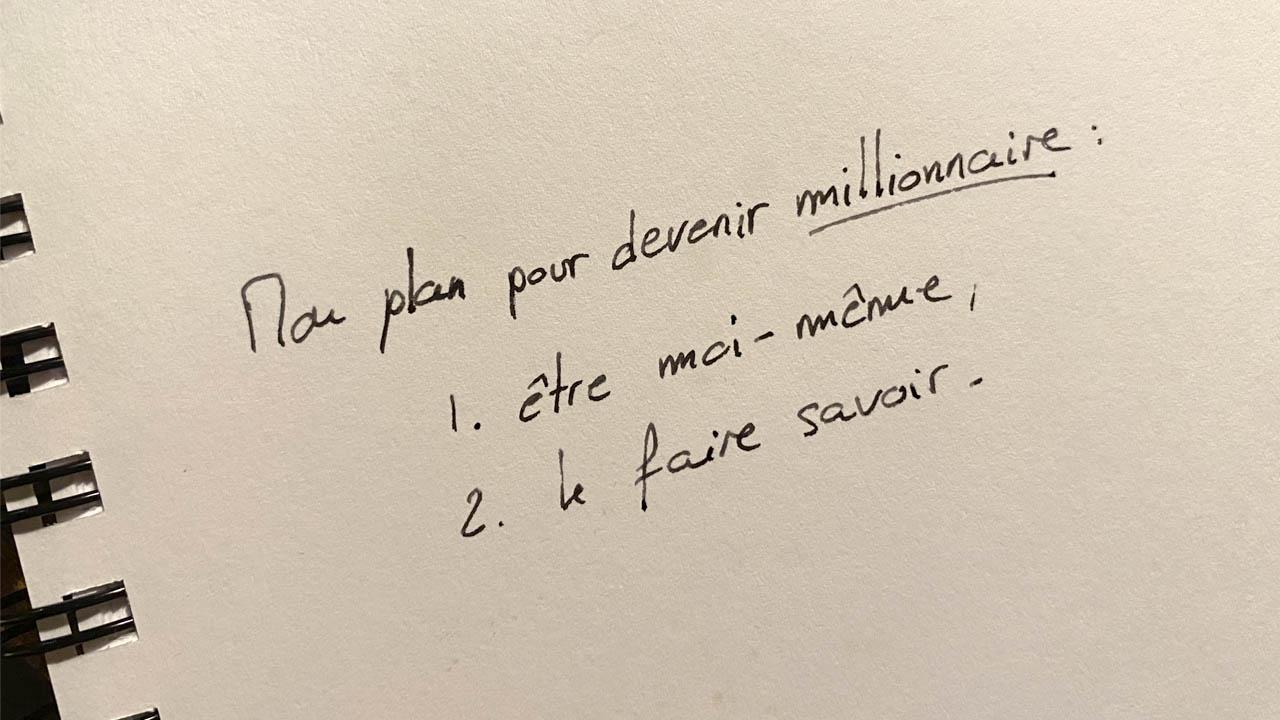 Mon plan pour devenir millionnaire :
1. être moi-même,
2. le faire savoir.